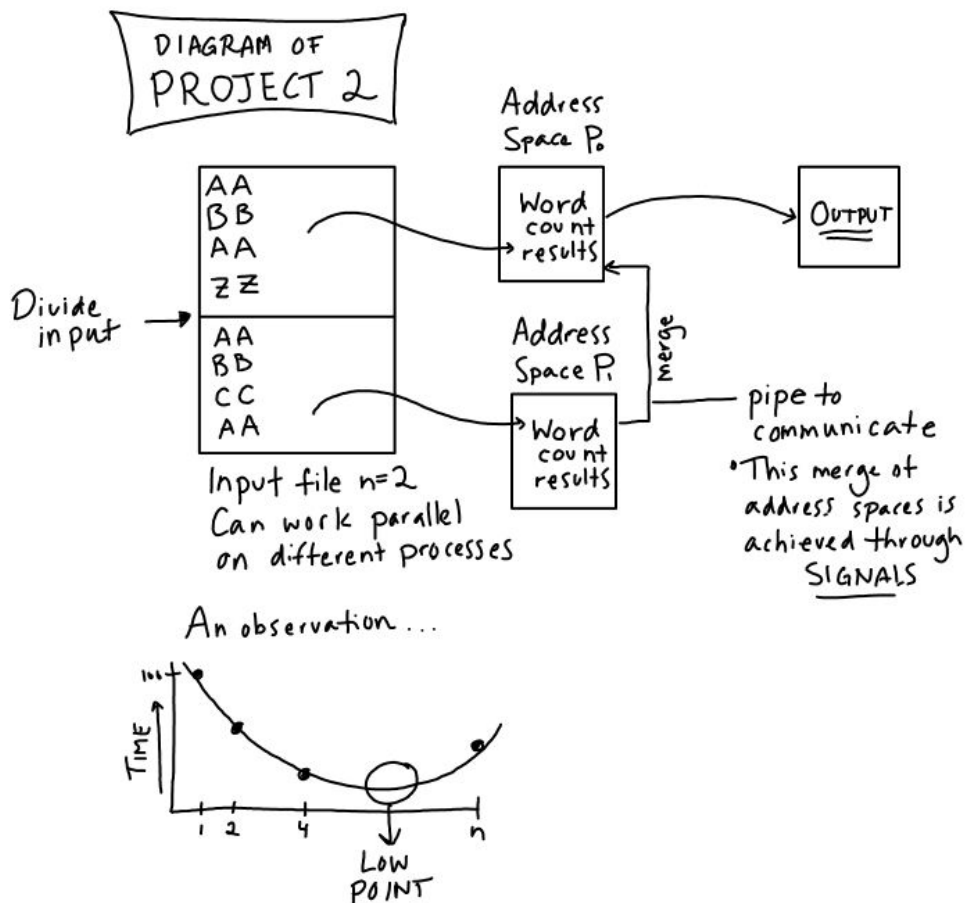 DIAGRAM OF
PROJECT 2
Divide
input
AA
BB
AA
ZZ
AA
BB
CC
AA
Input file n=2
Can work parallel
on different processes
Address
Space P₀
Word
count
results
Address
Space P₁
Word
count
results
merge
OUTPUT
pipe to
communicate
•This merge of
address spaces is
achieved through
SIGNALS
An observation...
100
TIME
1 2 4 n
LOW
POINT